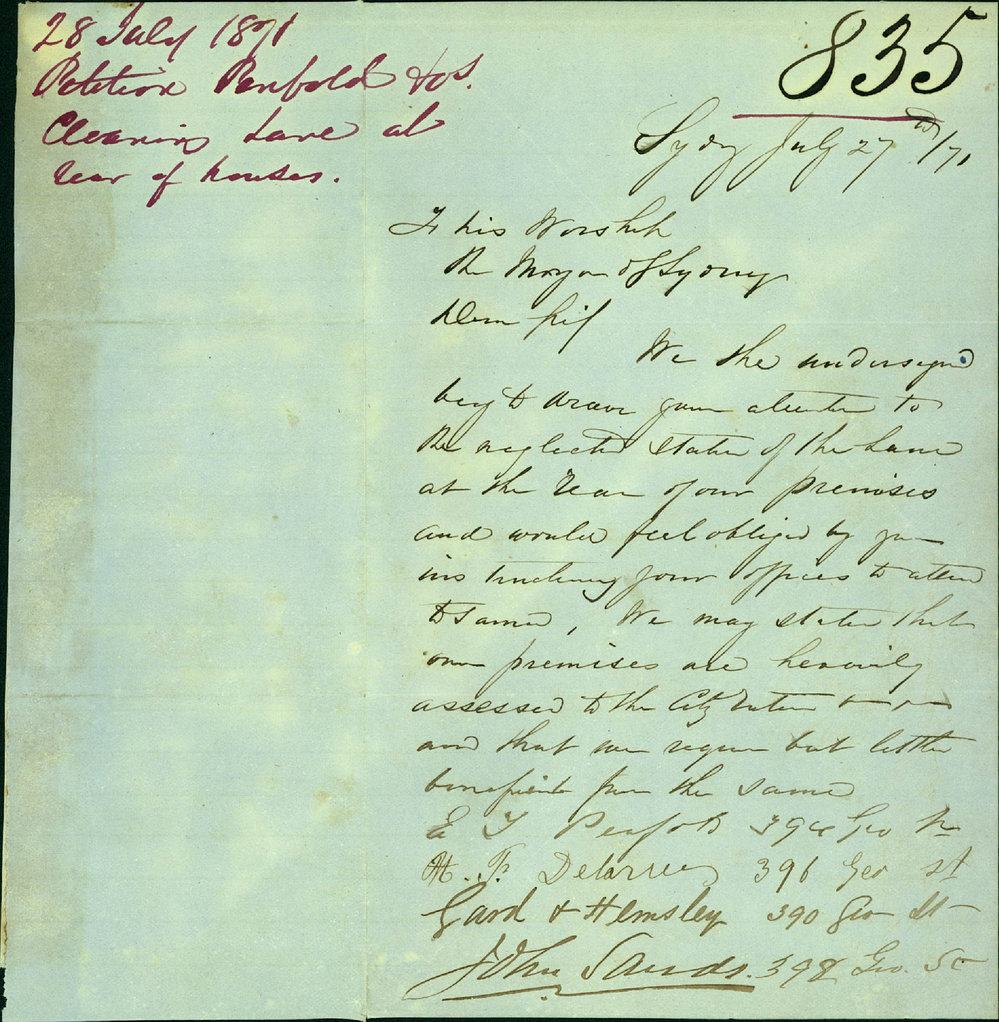 28 July 1871
Petition Penfold & Os.
Cleaning Lane at
rear of houses.
835
Sydy July 27th/71
To his Worship
the Mayor of Sydney
Dear Sir
We the undersigned
beg to draw your attention to
the neglected state of the Lane
at the Rear of our premises
and would feel obliged by your
instructing your officers to attend
to same, We may state that
our premises are heavily
assessed to the City Rates
and that we require but little
benefit from the same
E J Penfold 394 Geo St
H. F. 396 Geo St
Gard & Hemsley 390 Geo St
John Sands. 398 Geo. St